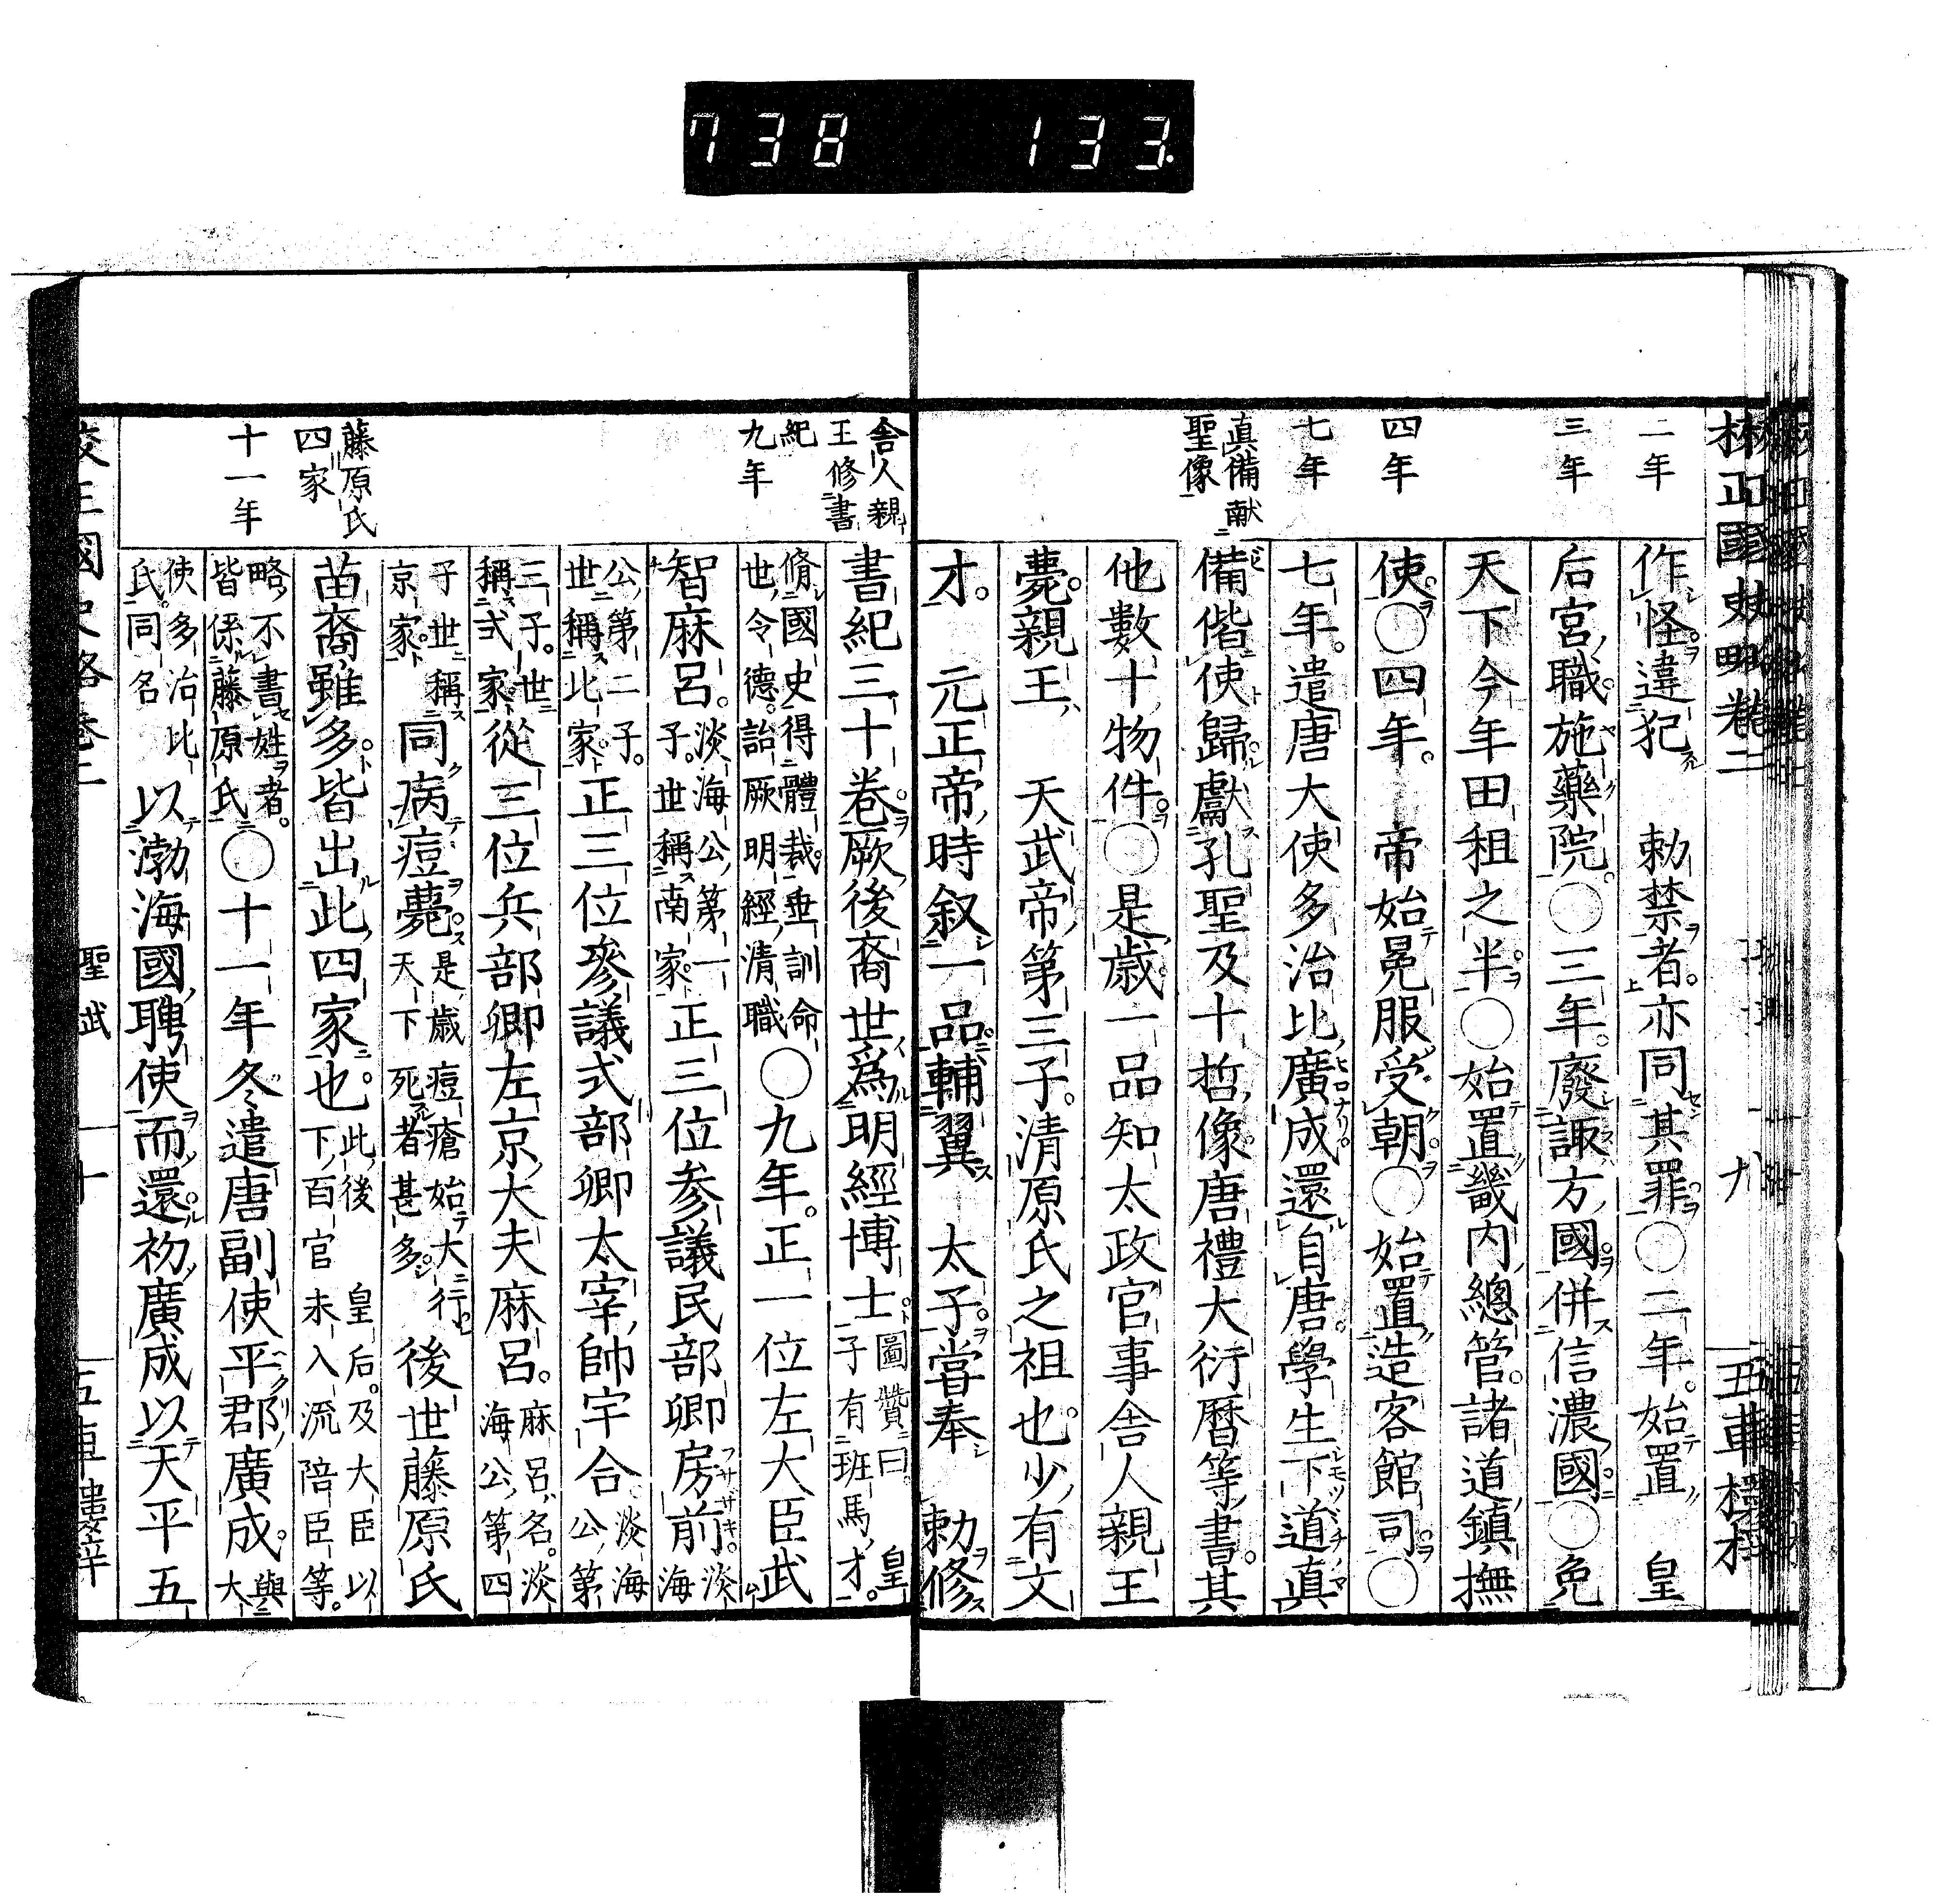 738 133.
二年
三年
四年
七年
真備献
聖像
作怪違犯 勅禁者亦同其罪○二年始置 皇
后宮職施藥院○三年廢諏方國併信濃國○免
天下今年田租之半○始置畿内總管諸道鎮撫
使○四年 帝始冕服受朝○始置造客館司○
七年遣唐大使多治比廣成還自唐學生下道真
備偕使歸獻孔聖及十哲像唐禮大衍暦等書其
他數十物件○是歳一品知太政官事舎人親王
薨親王 天武帝第三子清原氏之祖也少有文
才 元正帝時叙一品輔翼 太子嘗奉 勅修
舎人親
王修書
紀
九年
藤原氏
四家
十一年
書紀三十卷厥後裔世爲明經博士圖贊曰 皇子有班馬才
脩國史得體裁垂訓命世令德詒厥明經清職○九年正一位左大臣武
智麻呂淡海公第一子世稱南家正三位参議民部卿房前淡海
公第二子世稱北家正三位參議式部卿太宰帥宇合淡海公第
三子世稱弍家從三位兵部卿左京大夫麻呂麻呂名淡海公第四
子世稱京家同病痘薨是歳痘瘡始大行天下死者甚多後世藤原氏
苗裔雖多皆出此四家也此後 皇后及大臣以下百官未入流陪臣等
略不書姓者皆係藤原氏○十一年冬遣唐副使平郡廣成與大
使多治比氏同名以渤海國聘使而還初廣成以天平五
聖武
十